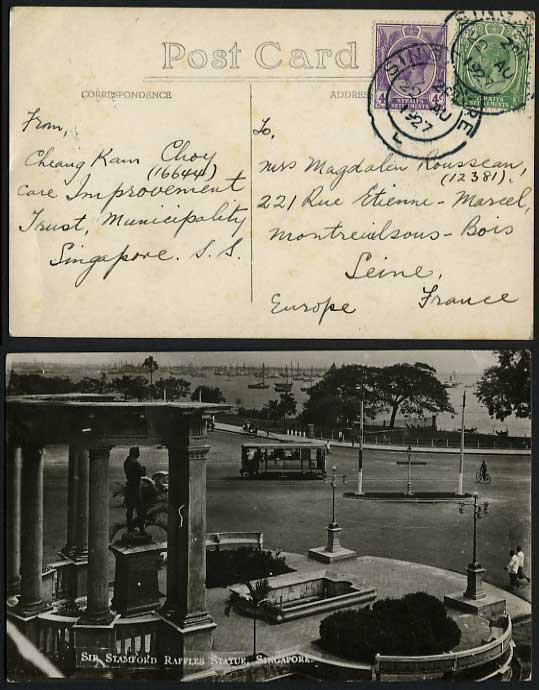 Post Card
CORRESPONDENCE
ADDRESS
From,
Cheang Kam Choy
(16644)
Care Improvement
Trust, Municipality
Singapore. S. S.
To,
Miss Magdalen Rousseau,
(12381).
221 Rue Etienne-Marcel,
Montreuilsous-Bois
Seine,
Europe France
STRAITS
SETTLEMENTS
STRAITS
SETTLEMENTS
SINGAPORE
AU
1927
SIR STAMFORD RAFFLES STATUE, SINGAPORE.